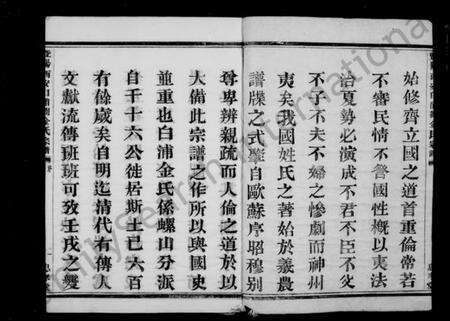 始修齊立國之道首重倫常若
不審民情不習國性概以夷法
治夏勢必演成不君不臣不父
不子不夫不婦之慘劇而神州
夷矣我國姓氏之著始於義農
譜牒之式聿自歐蘇序昭穆別
尊卑辨親疏而人倫之道於以
大備此宗譜之作所以與國史
並重也白浦金氏係螺山分派
自千十六公徙居斯土已六百
有餘歲矣自明迄清代有傳人
文獻流傳班班可攷壬戌之變
FamilySearch International